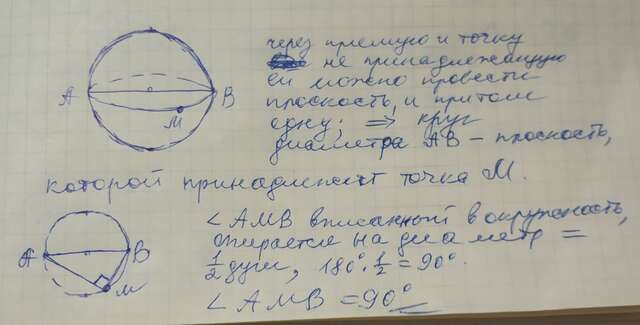 через прямую и точку
не принадлежащую
ей можно провести
плоскость, и притом
одну; ⇒ круг
диаметра AB – плоскость,
которой принадлежит точка M.
A B M
∠AMB вписанный в окружность,
опирается на диаметр =
1/2 дуги, 180° · 1/2 = 90°.
∠AMB = 90°
A B M